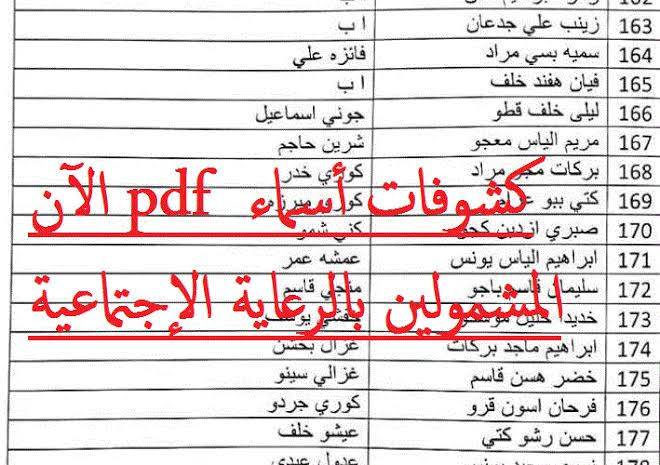 163 زينب علي جدعان ا ب
164 سميه بسي مراد فائزه علي
165 فيان هفند خلف ا ب
166 ليلى خلف قطو جوني اسماعيل
167 مريم الياس معجو شرين حاجم
168 بركات مراد كوري خدر
كشوفات أسماء pdf الآن
169 كتي ببو
170 صبري شمو
171 ابراهيم الياس يونس عمشه عمر
172 سليمان قاسم باجو قاسم
المشمولين بالرعاية الإجتماعية
173
174 ابراهيم ماجد بركات غزال
175 خضر هسن قاسم غزالي سينو
176 فرحان اسون قرو كوري جردو
177 حسن رشو كتي عيشو خلف
عدول عبدي